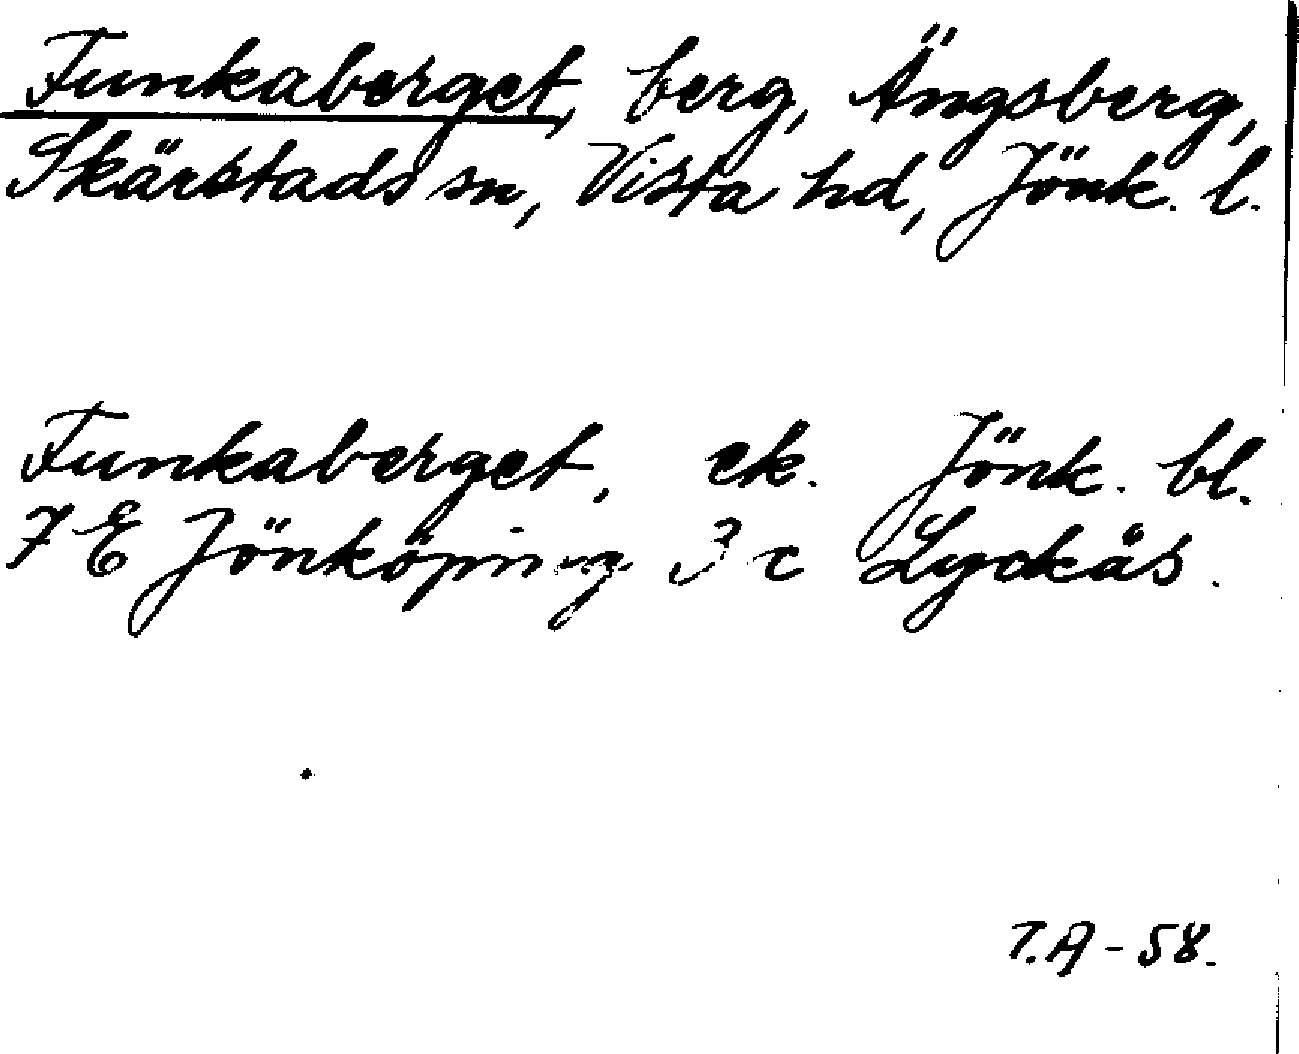 Funkaberget, berg, Ängsberg,
Skärstads sn, Vista hd, Jönk. l.
Funkaberget, ek. Jönk. bl.
7 E Jönköping 3 c Lyckås.
T.A-58.